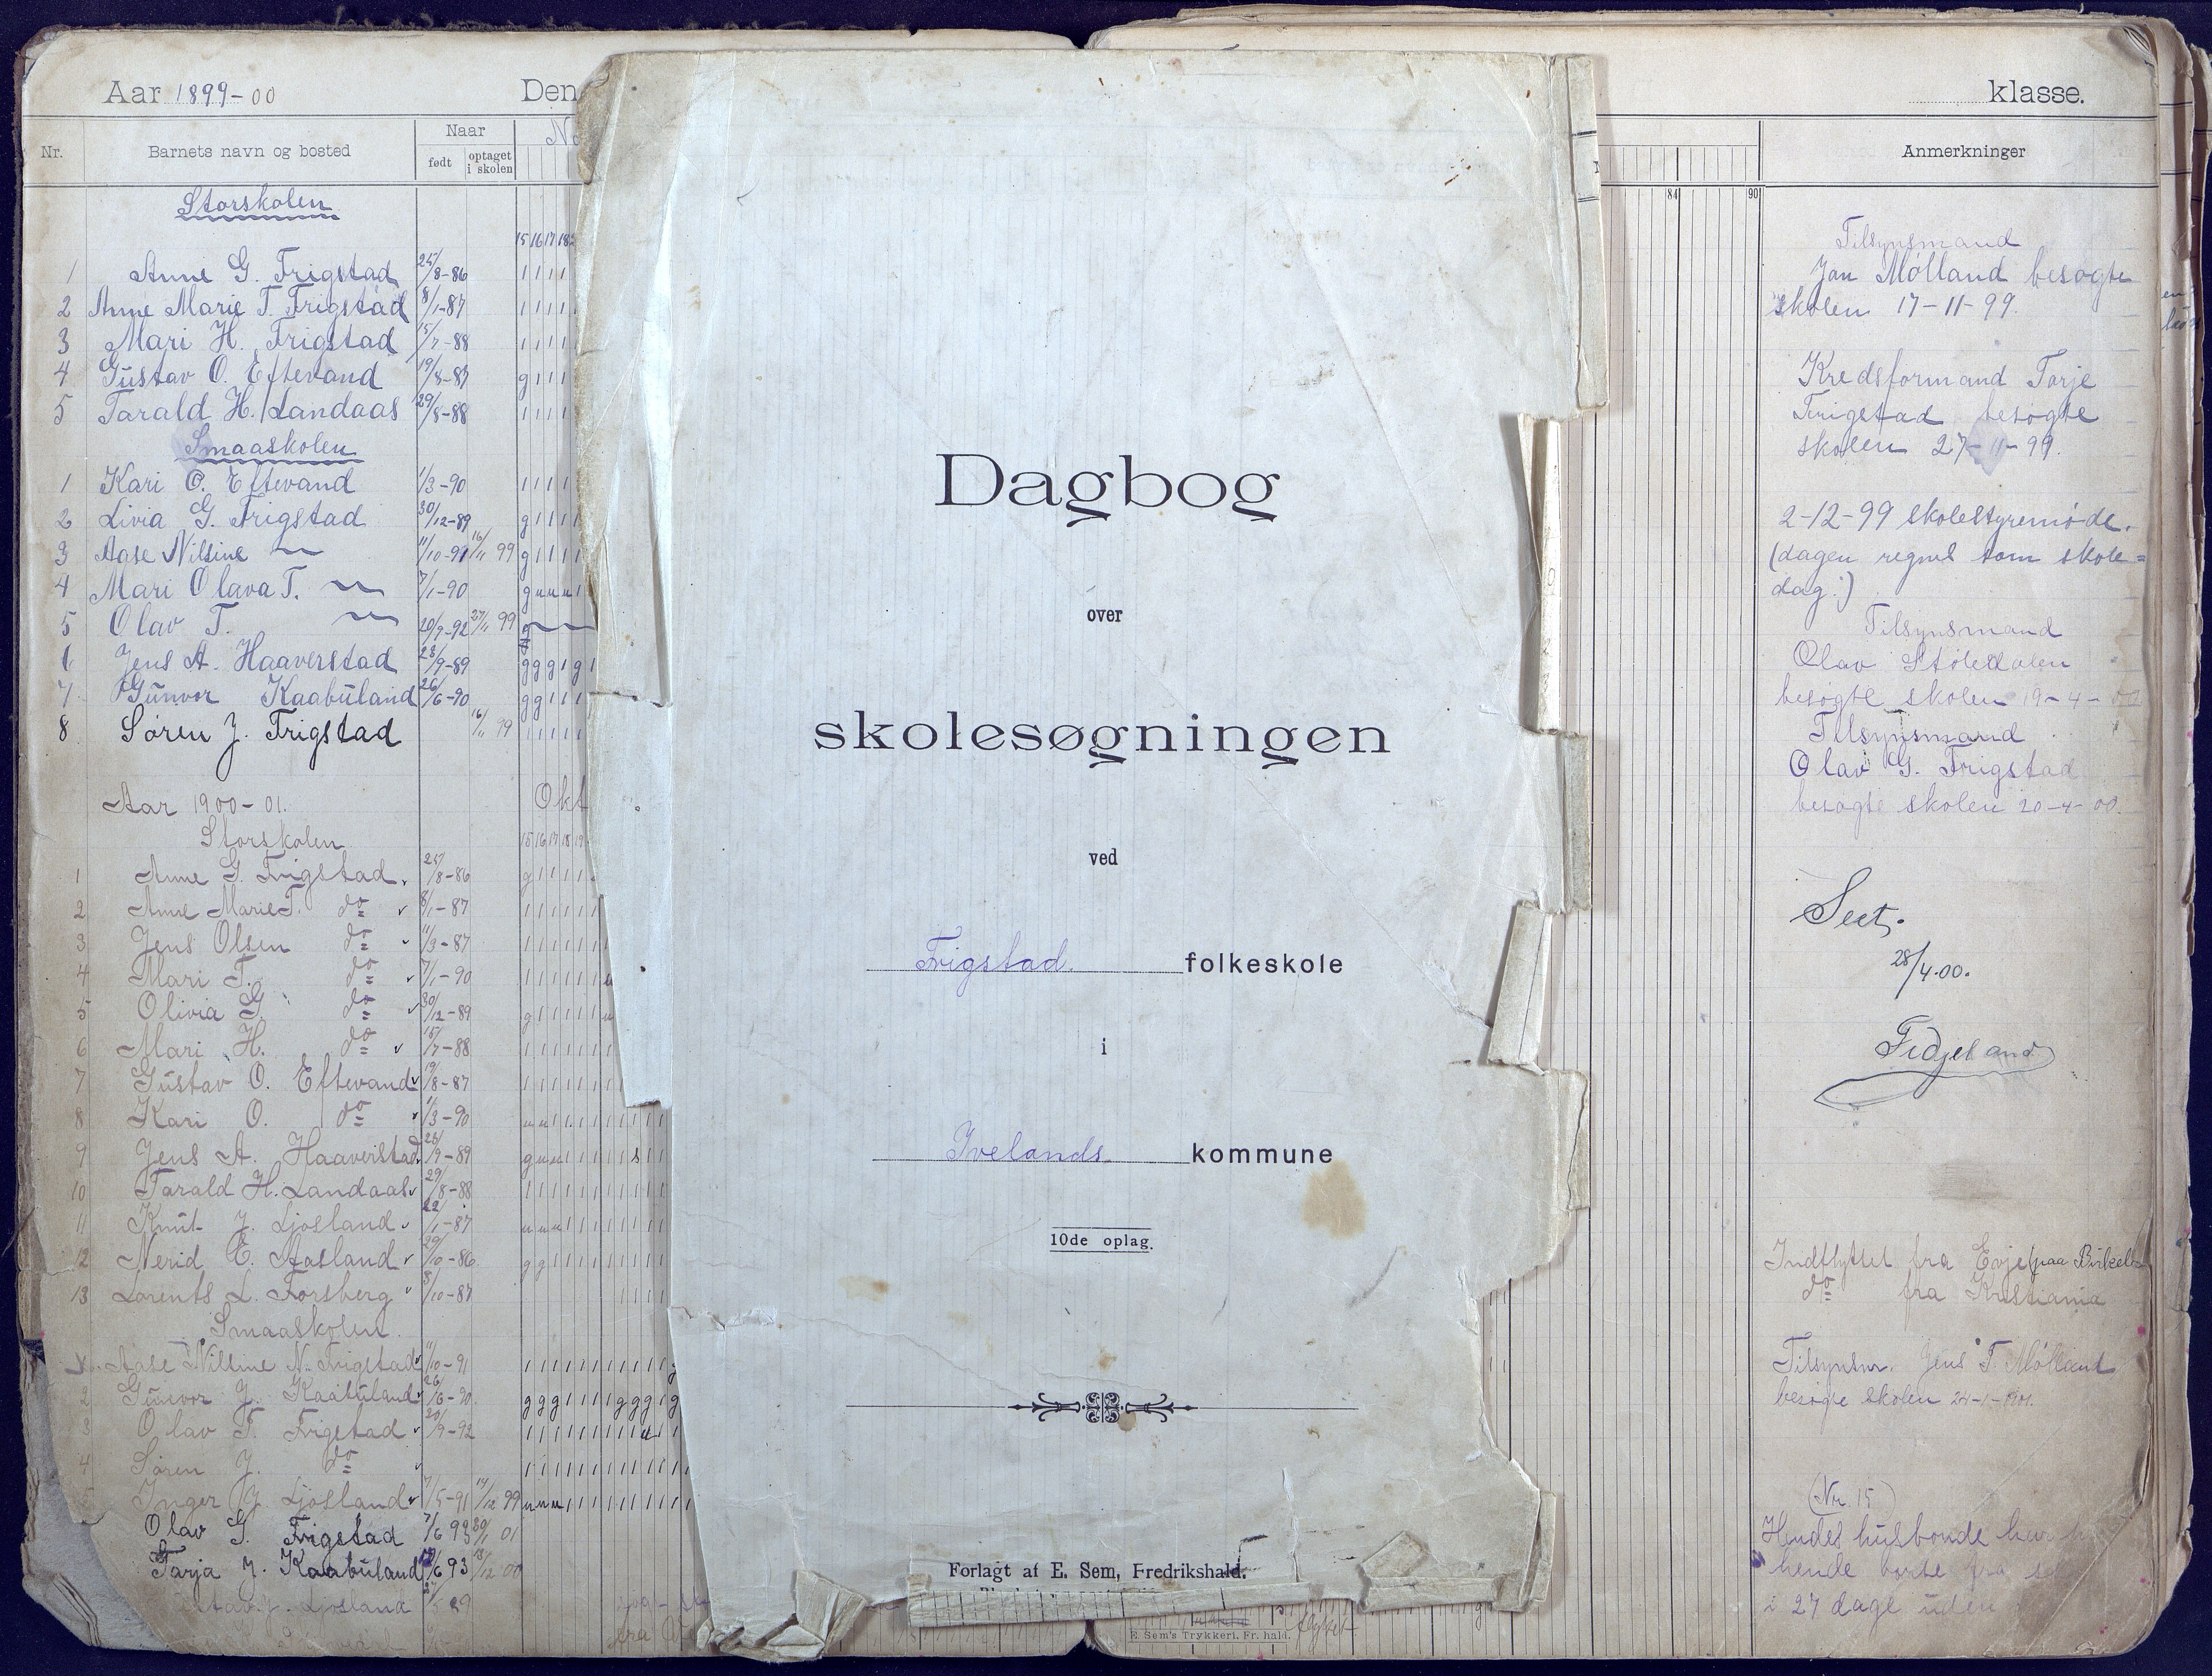 Aar 1899-00
Den
Nr.
Barnets navn og bosted
Naar
født
optaget i skolen
Storskolen
15 16 17 18
1 Anne G. Frigstad 25/8-86
2 Anne Marie T. Frigstad 8/1-87
3 Mari H. Frigstad 15/7-88
4 Gustav O. Eftevand 19/8-87 g
5 Tarald H. Landaas 29/8-88
Smaaskolen
1 Kari O. Eftevand 1/3-90
2 Livia G. Frigstad 30/12-89 g
3 Aase Nilsine — 11/10-91 16/11 99 g
4 Mari Olava T. — 7/1-90 g u u u
5 Olav T. — 20/9-92 27/11 99 g
6 Jens A. Haaverstad 23/9-89 g g g 1 g
7 Gunvor Kaabuland 26/6-90 g g
8 Søren J. Frigstad 16/11 99
Aar 1900-01.
Okt
Storskolen
15 16 17 18 19
1 Anne G. Frigstad 25/8-86 g
2 Anne Marie T. do 8/1-87
3 Jens Olsen do 11/3-87
4 Mari T. do 7/1-90
5 Olivia G. do 30/12-89 g
6 Mari H. do 15/7-88
7 Gustav O. Eftevand 19/8-87
8 Kari O. do 1/3-90 u u
9 Jens A. Haaverstad 23/9-89 g u u s
10 Tarald H. Landaas 29/8-88
11 Knut J. Ljosland 22/1-87 u u u
12 Nerid E. Aasland 29/10-86 g g
13 Lorents L. Forsberg 8/10-87
Smaaskolen
Aase Nilsine N. Frigstad 11/10-91
2 Gunvor J. Kaabuland 26/6-90 g g g
3 Olav T. Frigstad 20/9-92
4 Søren J. do
5 Inger J. Ljosland 7/5-91 14/12 99 u u u
Olav G. Frigstad 7/6 93 30/1 01
Tarja J. Kaabuland /6 93 18/12 00
Ljosland
Dagbog
over
skolesøgningen
ved
Frigstad folkeskole
i
Ivelands kommune
10de oplag.
Forlagt af E. Sem, Fredrikshald.
E. Sem's Trykkeri. Fr. hald.
flyttet
klasse.
Anmerkninger
84 90
Tilsynsmand
Jon Mølland besøgte
skolen 17-11-99.
Kredsformand Tarje
Frigstad besøgte
skolen 27-11-99.
2-12-99 skolestyremøde.
(dagen regnet som skole=
dag.)
Tilsynsmand
Olav Støledalen
besøgte skolen 19-4-00
Tilsynsmand
Olav G. Frigstad
besøgte skolen 20-4-00.
Seet.
28/4.00.
Fidjeland
Indflyttet fra Evje (paa Birkel
do fra Kristiania
Tilsynsm. Jens T. Mølland
besøgte skolen 24-1-1901.
(Nr. 15)
Hendes husbonde har h
hende borte fra s
i 27 dage uden